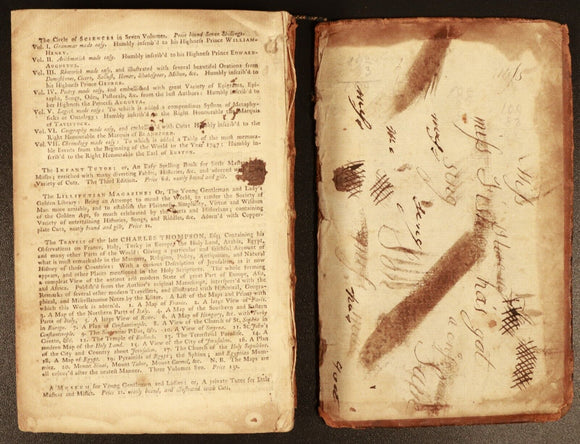 The Circle of SCIENCES in Seven Volumes. Price bound Seven Shillings.
Vol. I. Grammar made easy. Humbly inscrib'd to his Highness Prince WILLIAM-
HENRY.
Vol. II. Arithmetick made easy. Humbly inscrib'd to his Highness Prince EDWARD-
AUGUSTUS.
Vol. III. Rhetorick made easy, and illustrated with several beautiful Orations from
Demosthenes, Cicero, Sallust, Homer, Shakespear, Milton, &c. Humbly inscrib'd to
his Highness Prince GEORGE.
Vol. IV. Poetry made easy, and embellished with great Variety of Epigrams, Epi-
taphs, Songs, Odes, Pastorals, &c. from the best Authors: Humbly inscrib'd to
her Highness the Princess AUGUSTA.
Vol. V. Logick made easy: To which is added a compendious System of Metaphy-
sicks or Ontology: Humbly inscrib'd to the Right Honourable the Marquis
of TAVISTOCK.
Vol. VI. Geography made easy, and embellished with Cuts: Humbly inscrib'd to the
Right Honourable the Marquis of
Vol. VII. Chronology made easy: To which is added a Table of the most memora-
ble Events from the Beginning of the World to the Year 1747: Humbly in-
scrib'd to the Right Honourable the Earl of
The INFANT TUTOR: or, An Easy Spelling Book for Little Masters and
Misses; enriched with many diverting Fables, Histories, &c. and adorned with
Variety of Cuts. The Third Edition. Price 6d. neatly bound and gilt.
The LILLIPUTIAN MAGAZINE: Or, The Young Gentleman and Lady's
Golden Library: Being an Attempt to mend the World, to render the Society of
Man more amiable, and to establish the Plainness, Simplicity, Virtue and Wisdom
of the Golden Age, so much celebrated by the Poets and Historians; containing
Variety of entertaining Histories, Songs, and Riddles, &c. Adorn'd with Copper-
plate Cuts, neatly bound and gilt, Price 1s.
The TRAVELS of the late CHARLES THOMPSON, Esq; Containing his
Observations on France, Italy, Turkey in Europe, the Holy Land, Arabia, Egypt,
and many other Parts of the World: Giving a particular and faithful Account of
what is most remarkable in the Manners, Religion, Policy, Antiquities, and Natural
History of those Countries: With a curious Description of Jerusalem, as it now
appears, and other Places mentioned in the Holy Scriptures. The whole forming
a compleat View of the antient and modern State of great Part of Europe, Asia,
and Africa. Publish'd from the Author's original Manuscript, interspers'd with the
Remarks of several other modern Travellers, and illustrated with Historical, Geogra-
phical, and Miscellaneous Notes by the Editor. A List of the Maps and Prints with
which this Work is adorn'd. 1. A Map of France. 2. A large View of Paris.
3. A Map of the Northern Parts of Italy. 4. A Map of the Southern and Eastern
Parts of Italy. 5. A large View of Rome. 6. A Map of Hungary, &c. with Turky
in Europe. 7. A Plan of Constantinople. 8. A View of the Church of St. Sophia in
Constantinople. 9. The Serpentine Pillar, &c. 10. A View of Smyrna. 11. St. John's
Grotto, &c. 12. The Temple of 13. The Terrestrial Paradise. 14. A
modern Map of the Holy Land. 15. A View of the City of Jerusalem. 16. A Plan
of the City and Country about Jerusalem. 17. The Church of the Holy Sepulchre.
18. A Map of Egypt. 19. Pyramids of Egypt; the Sphinx; and Egyptian Mum-
mies. 20. Mount Sinai, Mount Tabor, Mount Carmel, &c. N. B. The Maps are
all colour'd after the neatest Manner. Three Volumes 8vo. Price 15s.
A MUSEUM for Young Gentlemen and Ladies: or, A private Tutor for Little
Masters and Misses. Price 1s. neatly bound, and illustrated with Cuts.
miss
has got
a